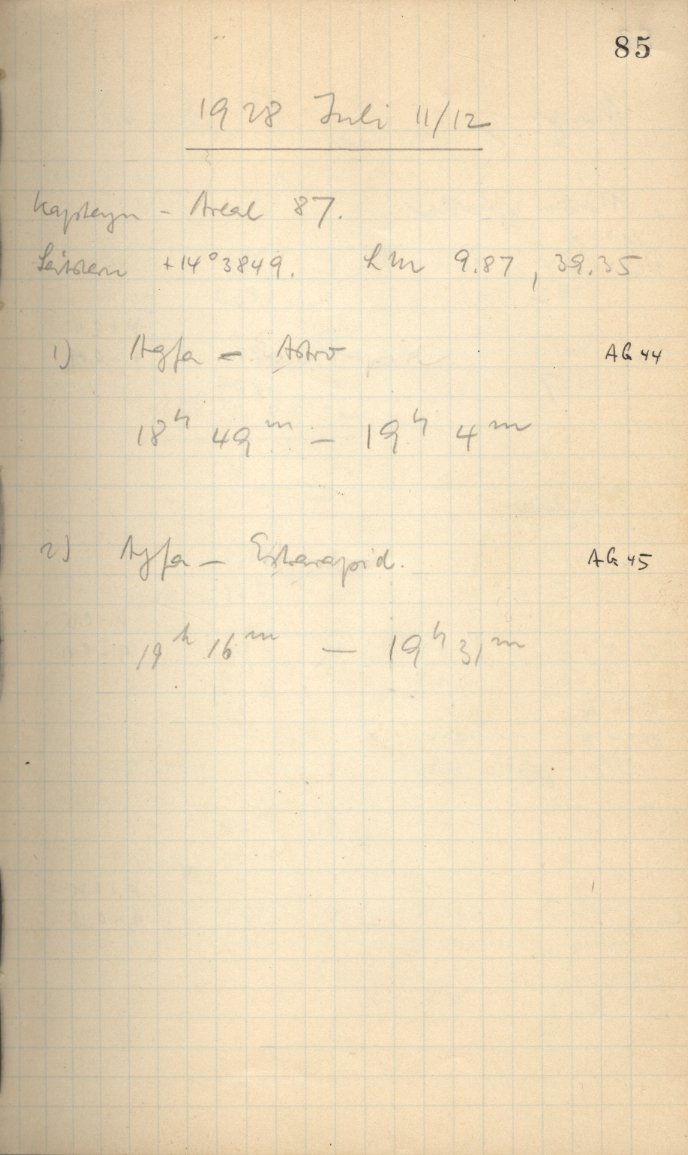 85
1928 Juli 11/12
Kapteyn - Areal 87.
Leitstern +14°3849. Lm 9.87, 39.35
1) Agfa - Astro AG 44
18h 49m - 19h 4m
2) Agfa - Extrarapid. AG 45
19h 16m - 19h 31m